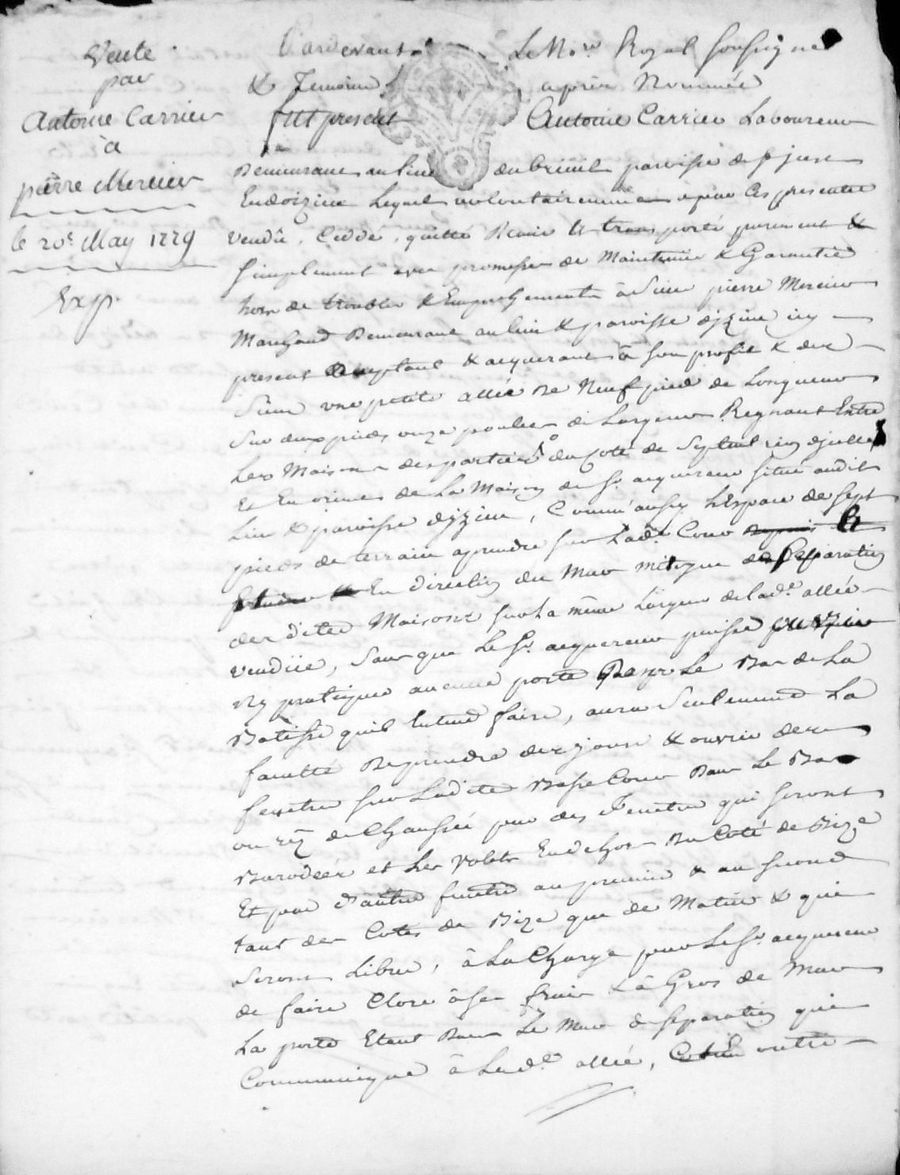 Vente
par
Antoine Carrier
à
pierre Mercier
le 20e May 1779
Exp.
Pardevant Le No.re Royal soussigné
& Temoins après Nommés
fut present Antoine Carrier Laboureur
Demeurant au lieu du breuil paroisse de st just
Endoizieu Lequel volontairement a par Ces presentes
vendû, Ceddé, quitté Remis et transporté purement &
simplement avec promesse de Maintenir & Garantir
hors de troubles & Empechements à Sieur pierre Mercier
Marchand Demeurant au lieu & paroisse dizieu icy
present acceptant & acquerant à son profit & des
siens une petite allée de Neuf pieds de Longueur
sur deux pieds onze pouces de Largeur Regnant Entre
Les Maisons des parties du coté de
Et En de La Maison du Sr. acquereur située audit
Lieu & paroisse dizieu, Comm'aussy L'Espace de sept
pieds de terrain aprendre sur Lad.e Cour Et
En direction du Mur mitoyen de separation
des dites Maisons sur La même Largeur de lad.e allée
vendüe, sans que Le Sr. acquereur puisse ouvrir
ny pratiquer aucune porte Dans Le Bas de La
Batisse qu'il Entend faire, aura seulement La
faculté De prendre des jours & ouvrir des
fenetres sur Ladite Basse Cour Dans Le Bas
ou réz de Chaussée par des fenetres qui seront
Barodées et Les volets En dehors Du Coté de Bize
Et par d'autres fenetres au premier & au second
tant des Cotés de Bize que de Matin & qui
seront Libres, à La Charge par Le Sr. acquereur
de faire Clore à ses frais & à Gros de Mur
La porte Etant Dans Le Mur de separation qui
Communique à Lad.e allée, outre